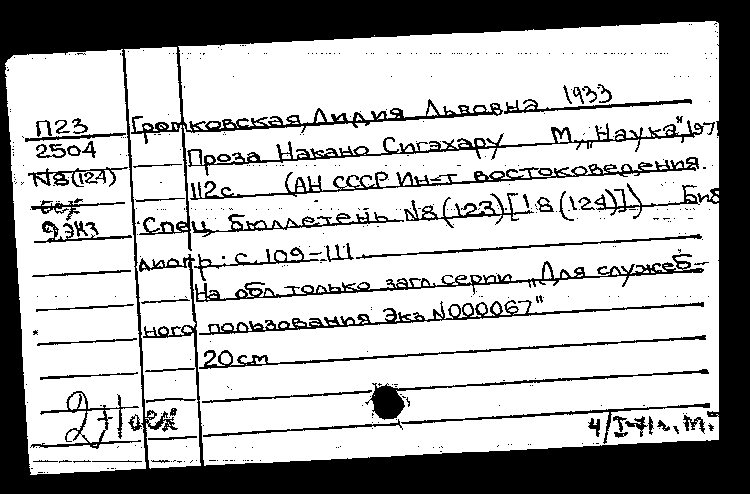 П23 Громковская, Лидия Львовна 1933
2504 Проза Накано Сигэхару М, „Наука", 197
N8(124) 112с. (АН СССР Ин-т востоковедения.
2 экз Спец. бюллетень N8(123)[! 8(124)]) Биб
лиогр: с. 109-111
На обл. только загл. серии „Для служеб-
ного пользования Экз. N000067"
20 см
2
4/I-71 г. М.